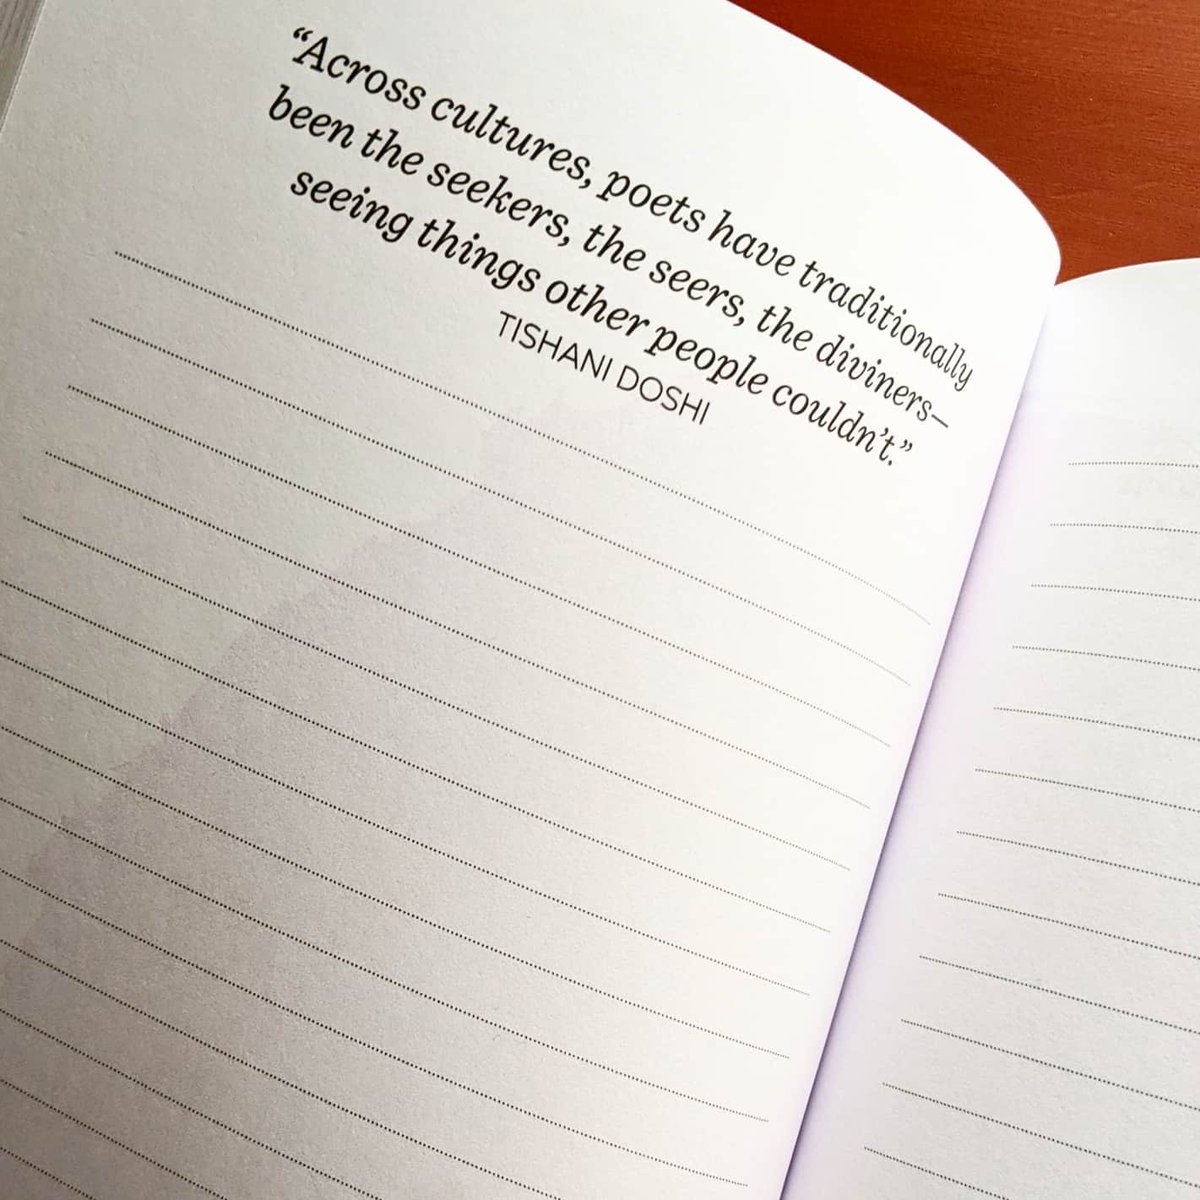 “Across cultures, poets have traditionally
been the seekers, the seers, the diviners–
seeing things other people couldn’t.”
TISHANI DOSHI